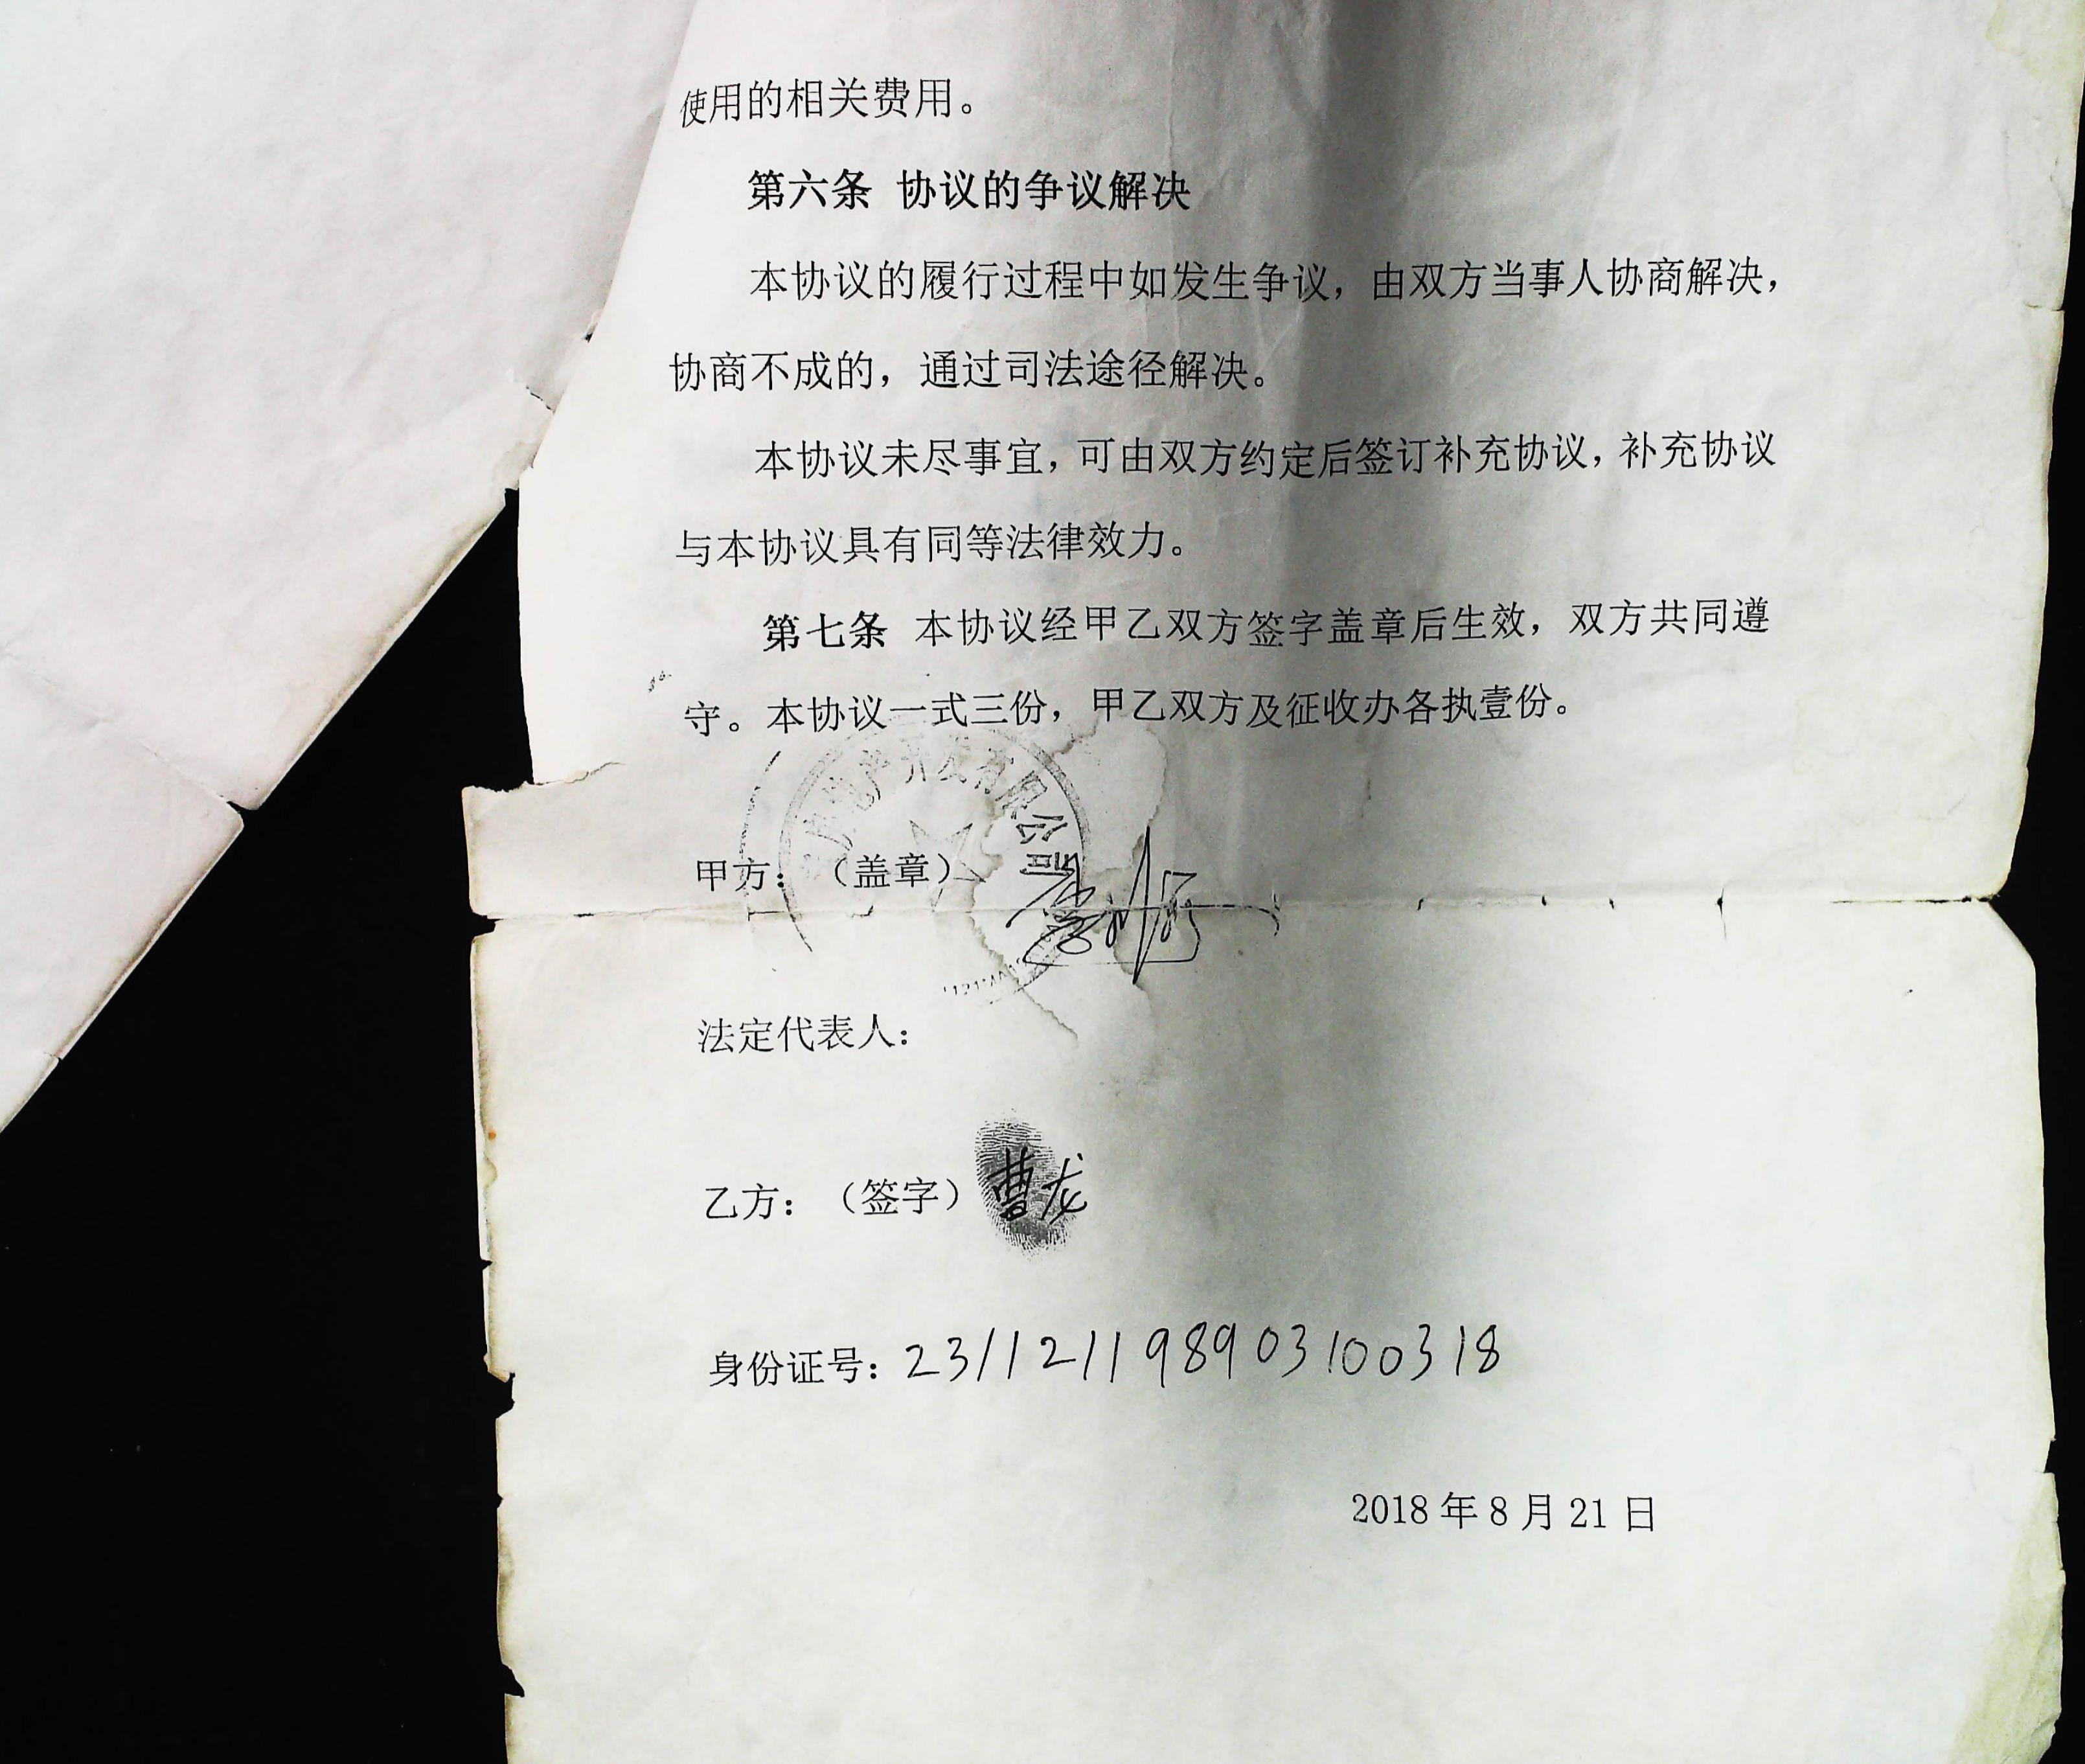 使用的相关费用。
第六条 协议的争议解决
本协议的履行过程中如发生争议，由双方当事人协商解决，
协商不成的，通过司法途径解决。
本协议未尽事宜，可由双方约定后签订补充协议，补充协议
与本协议具有同等法律效力。
第七条 本协议经甲乙双方签字盖章后生效，双方共同遵
守。本协议一式三份，甲乙双方及征收办各执壹份。
地产开发有限公司
甲方：（盖章）
法定代表人：
乙方：（签字）曹龙
身份证号：231121198903100318
2018年8月21日